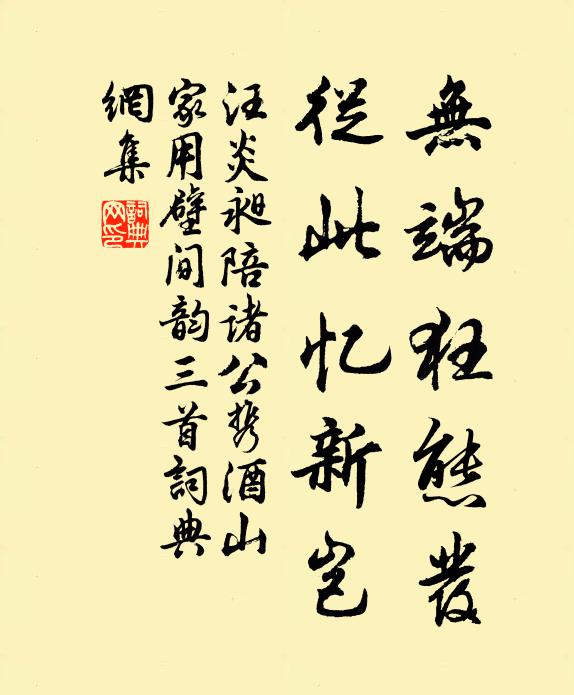 無端狂態發
從此忆新岂
汪炎昶陪诸公携酒山
家用壁间韵三首詞典
網集
詞典网印